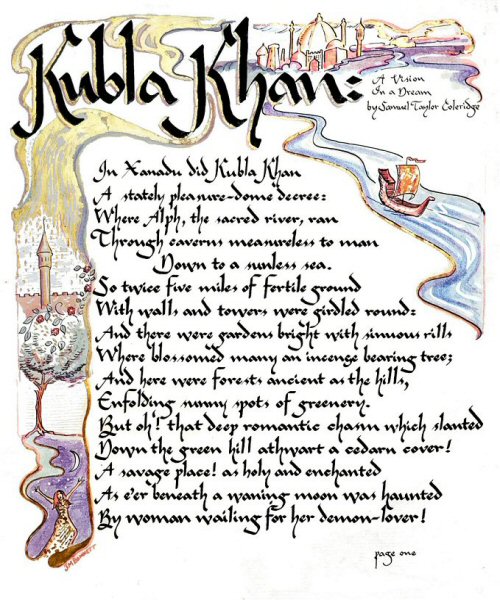 Kubla Khan:
A Vision
In a Dream
by Samuel Taylor Coleridge
In Xanadu did Kubla Khan
A stately pleasure-dome decree:
Where Alph, the sacred river, ran
Through caverns measureless to man
Down to a sunless sea.
So twice five miles of fertile ground
With walls and towers were girdled round:
And there were gardens bright with sinuous rills
Where blossomed many an incense bearing tree;
And here were forests ancient as the hills,
Enfolding sunny spots of greenery.
But oh! that deep romantic chasm which slanted
Down the green hill athwart a cedarn cover!
A savage place! as holy and enchanted
As e'er beneath a waning moon was haunted
By woman wailing for her demon-lover!
page one